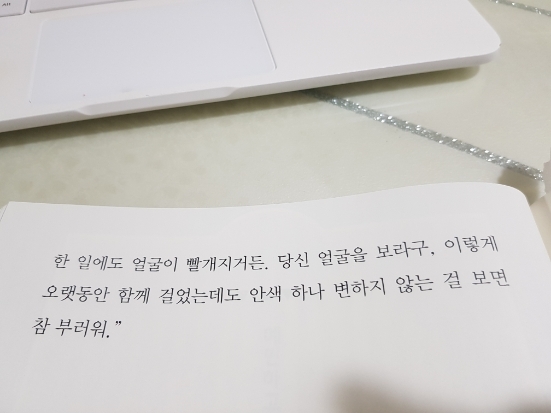 한 일에도 얼굴이 빨개지거든. 당신 얼굴을 보라구. 이렇게
오랫동안 함께 걸었는데도 안색 하나 변하지 않는 걸 보면
참 부러워.”